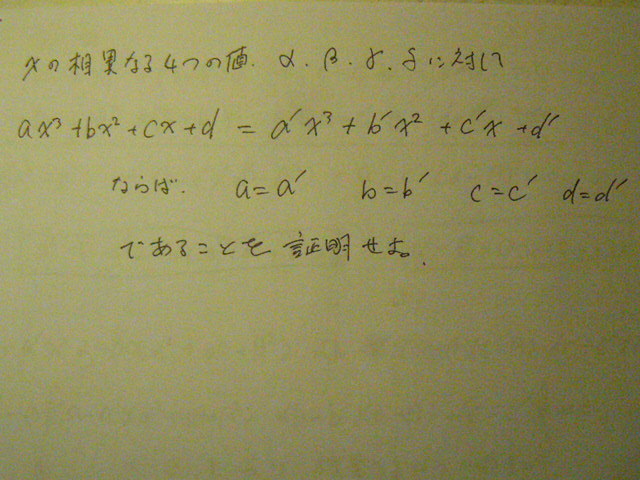 xの相異なる4つの値. α. β. γ. δに対して
ax³+bx²+cx+d = a′x³+b′x²+c′x+d′
ならば. a=a′ b=b′ c=c′ d=d′
であることを証明せよ。